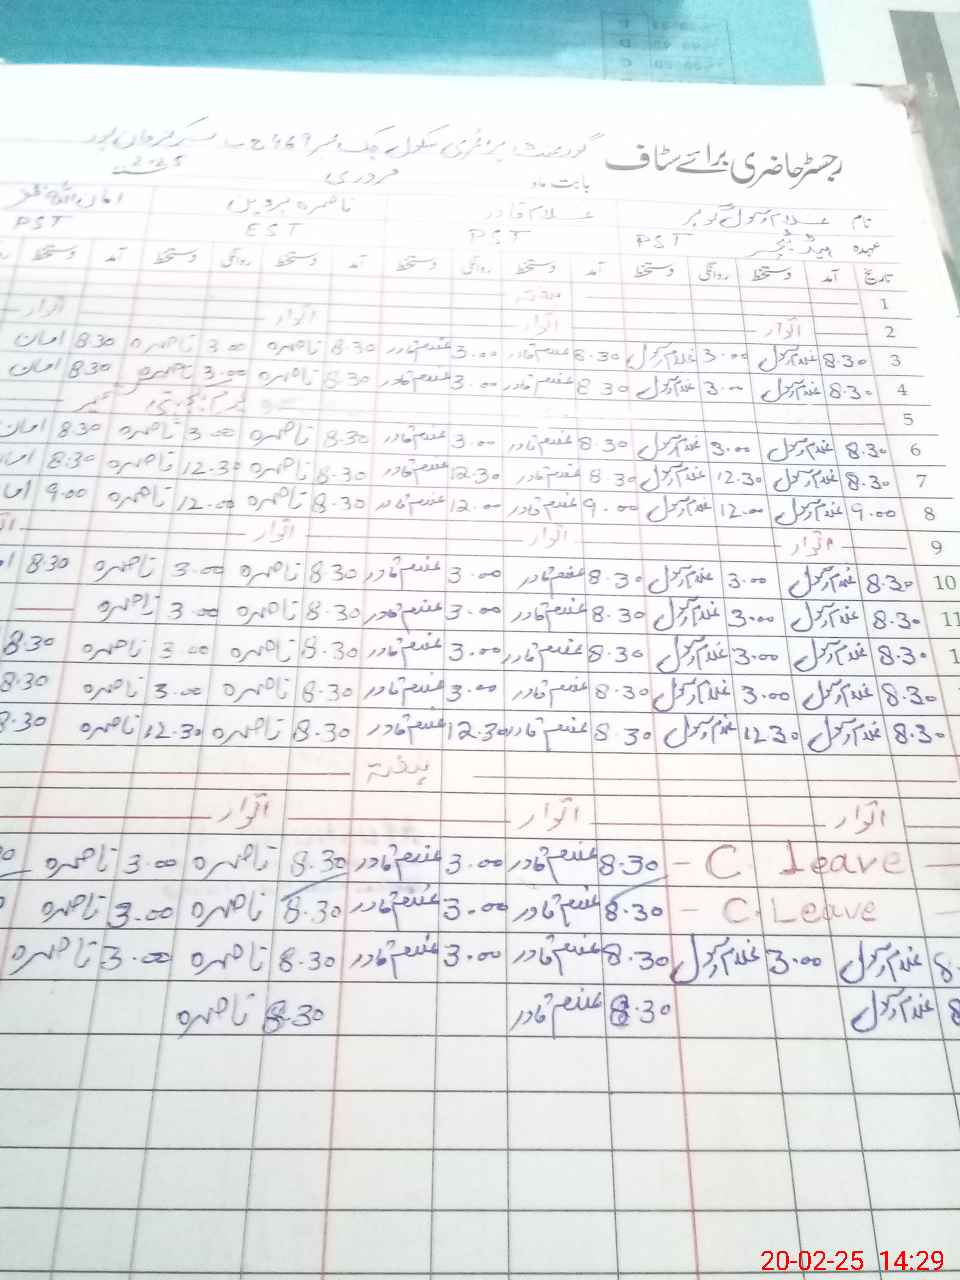 رجسٹر حاضری برائے سٹاف گورنمنٹ پرائمری سکول چک نمبر 469
بابت ماہ فروری 2025
نام غلام رسول غلام قادر ناصرہ پروین امان اللہ
عہدہ ہیڈ ٹیچر PST PST EST PST
تاریخ آمد دستخط روانگی دستخط آمد دستخط روانگی دستخط آمد دستخط روانگی دستخط آمد دستخط
1 ہفتہ
2 اتوار اتوار اتوار اتوار
3 8.30 غلام رسول 3.00 غلام رسول 8.30 غلام قادر 3.00 غلام قادر 8.30 ناصرہ 3.00 ناصرہ 8.30 امان
4 8.30 غلام رسول 3.00 غلام رسول 8.30 غلام قادر 3.00 غلام قادر 8.30 ناصرہ 3.00 ناصرہ 8.30 امان
5 یوم یکجہتی کشمیر
6 8.30 غلام رسول 3.00 غلام رسول 8.30 غلام قادر 3.00 غلام قادر 8.30 ناصرہ 3.00 ناصرہ 8.30 امان
7 8.30 غلام رسول 12.30 غلام رسول 8.30 غلام قادر 12.30 غلام قادر 8.30 ناصرہ 12.30 ناصرہ 8.30 امان
8 9.00 غلام رسول 12.00 غلام رسول 9.00 غلام قادر 12.00 غلام قادر 8.30 ناصرہ 12.00 ناصرہ 9.00
9 اتوار اتوار اتوار
10 8.30 غلام رسول 3.00 غلام رسول 8.30 غلام قادر 3.00 غلام قادر 8.30 ناصرہ 3.00 ناصرہ 8.30
11 8.30 غلام رسول 3.00 غلام رسول 8.30 غلام قادر 3.00 غلام قادر 8.30 ناصرہ 3.00 ناصرہ
1 8.30 غلام رسول 3.00 غلام رسول 8.30 غلام قادر 3.00 غلام قادر 8.30 ناصرہ 3.00 ناصرہ 8.30
8.30 غلام رسول 3.00 غلام رسول 8.30 غلام قادر 3.00 غلام قادر 8.30 ناصرہ 3.00 ناصرہ 8.30
8.30 غلام رسول 12.30 غلام رسول 8.30 غلام قادر 12.30 غلام قادر 8.30 ناصرہ 12.30 ناصرہ 8.30
ہفتہ
اتوار اتوار اتوار
C. Leave 8.30 غلام قادر 3.00 غلام قادر 8.30 ناصرہ 3.00 ناصرہ
C. Leave 8.30 غلام قادر 3.00 غلام قادر 8.30 ناصرہ 3.00 ناصرہ
8. غلام رسول 3.00 غلام رسول 8.30 غلام قادر 3.00 غلام قادر 8.30 ناصرہ 3.00 ناصرہ
8 غلام رسول 8.30 غلام قادر 8.30 ناصرہ
20-02-25 14:29